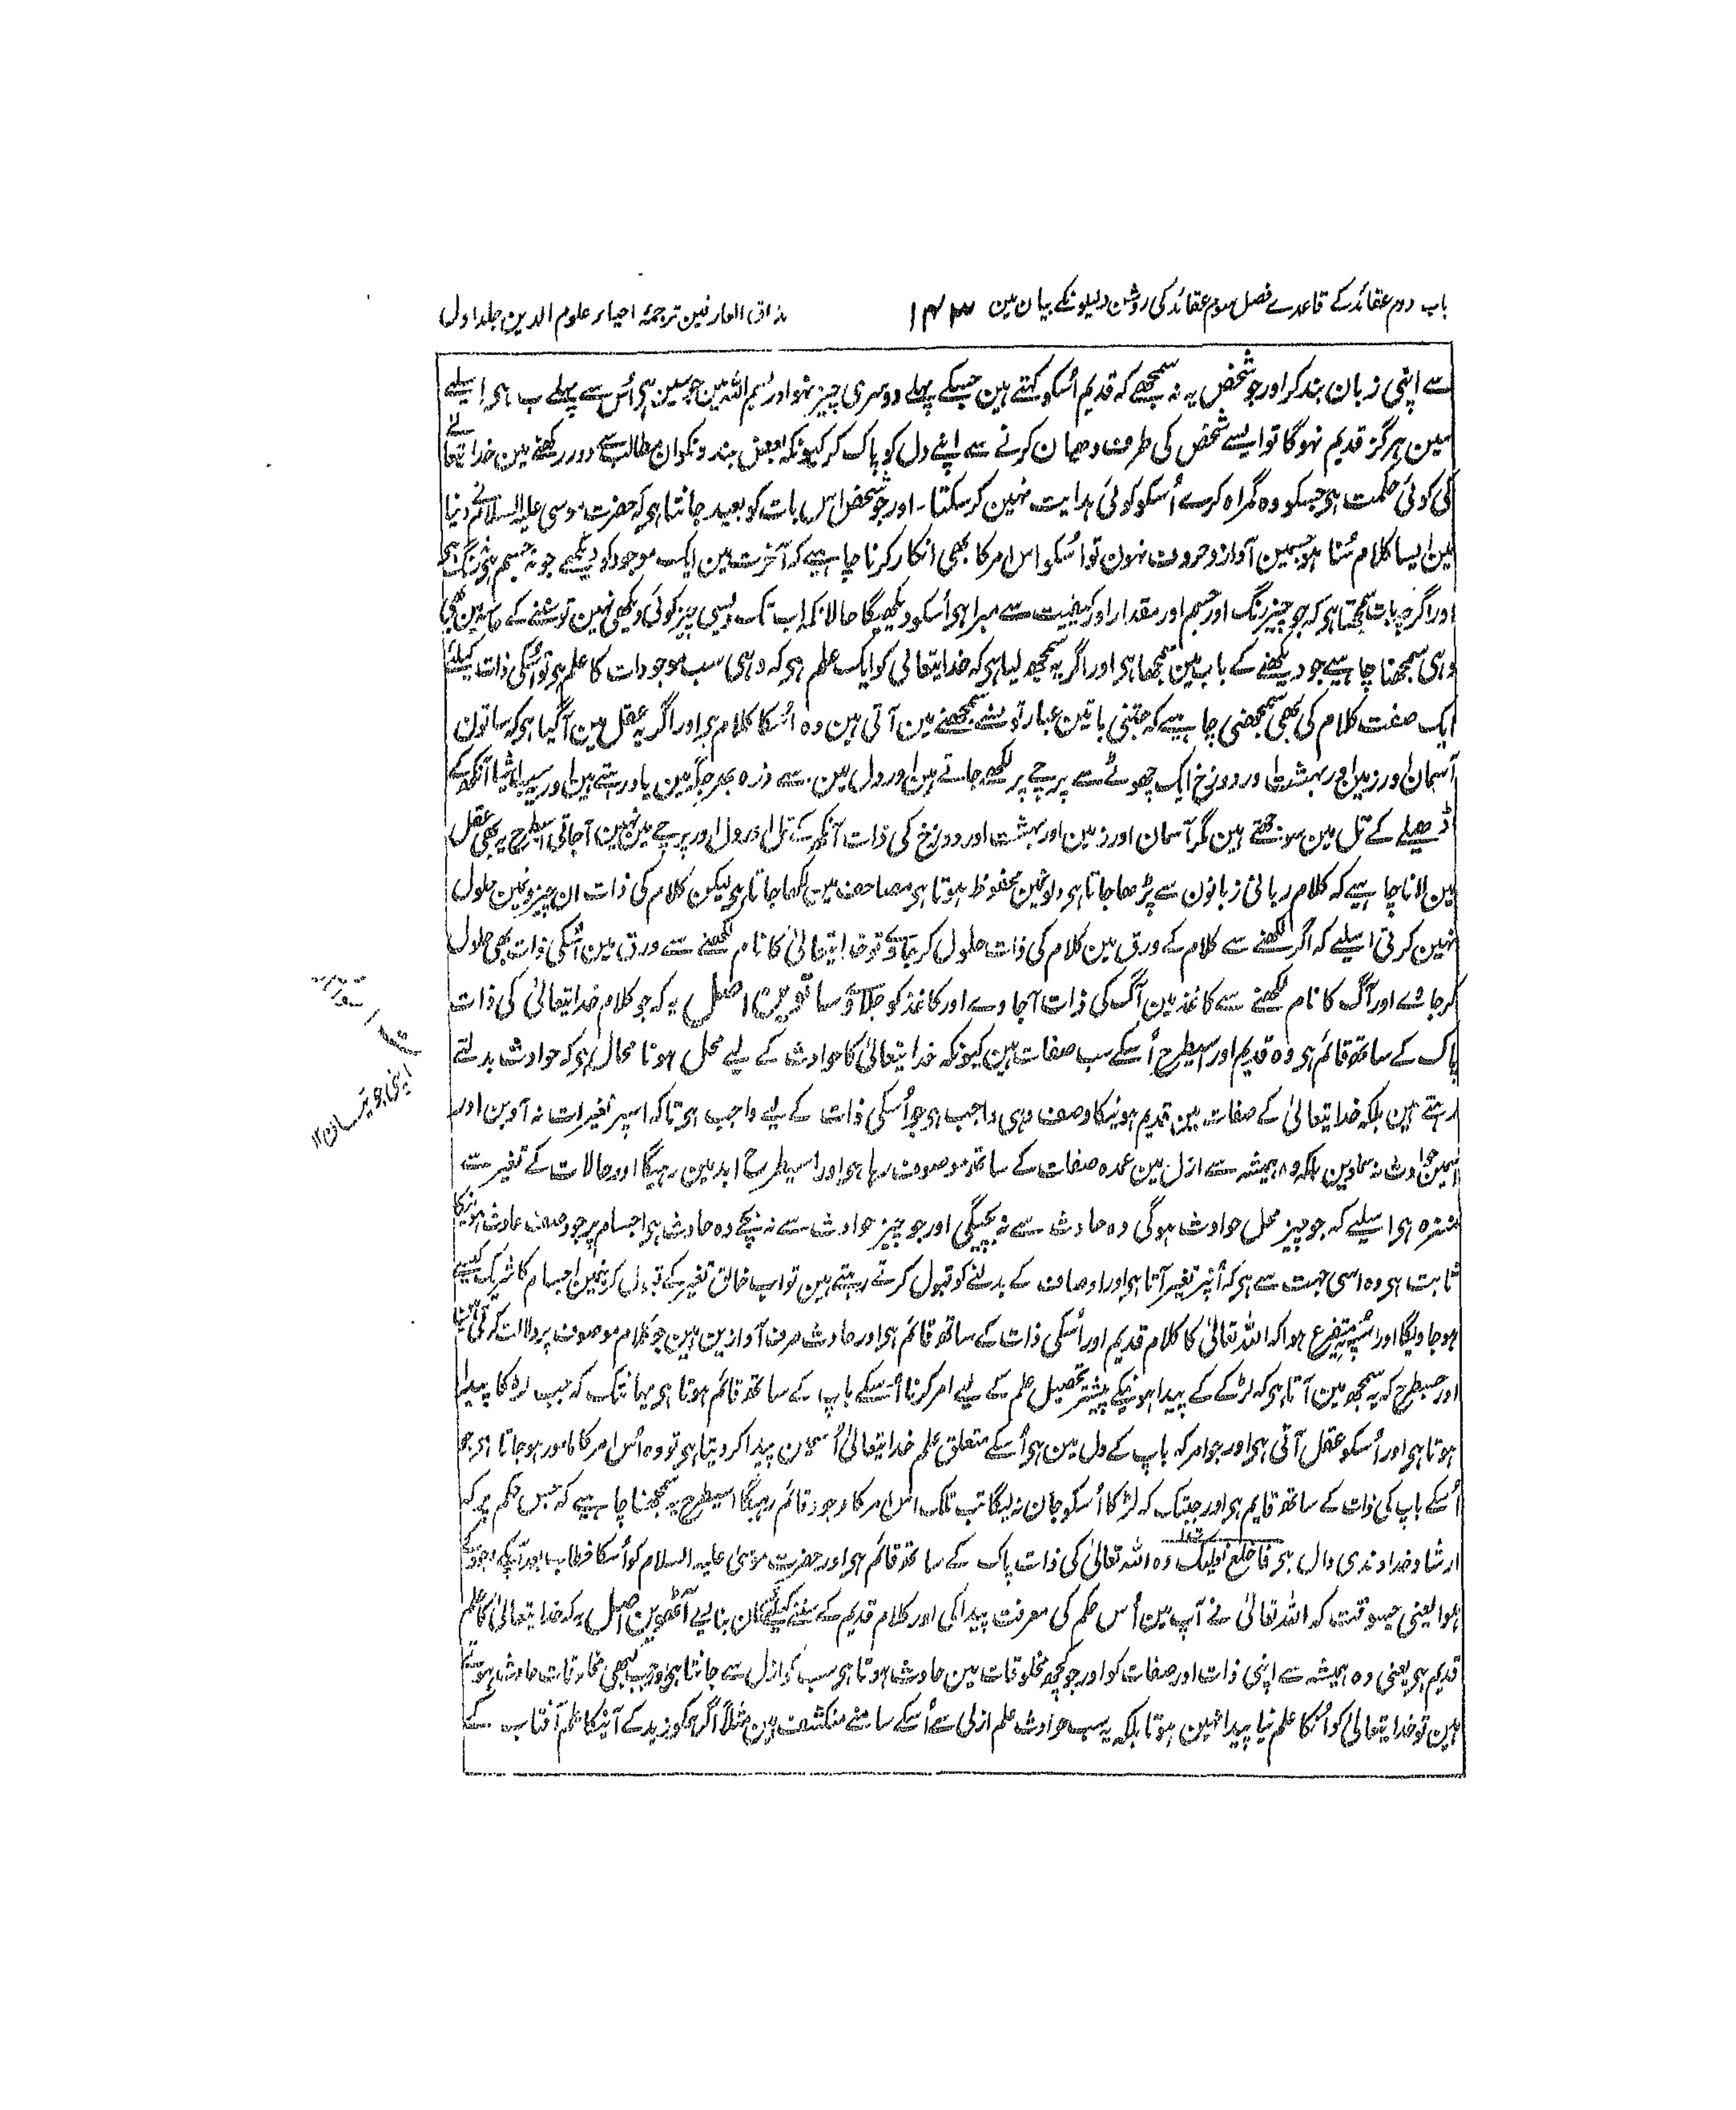 باب دوم عقائد کے قاعدے فصل سوم عقائد کی روشن دلیلونکے بیان مین ۱۴۳ مذاق العارفین ترجمۂ احیاء علوم الدین جلد اول
سے اپنی زبان بند کر اور جو شخص یہ نہ سمجھے کہ قدیم اُسکو کہتے ہین جسکے پہلے دوسری چیز نہو اور بسم اللہ مین جو سین ہی اُس سے پہلے ب ہی اسیلیے
سین ہرگز قدیم نہوگا تو ایسے شخص کی طرف دھیان کرنے سے اپنے دل کو پاک کر کیونکہ بعض بندونکو ان مطالب سے دور رکھنے مین خدا یتعالے
کی کوئی حکمت ہی جسکو وہ گمراہ کرے اُسکو کوئی ہدایت نہین کر سکتا۔ اور جو شخص اس بات کو بعید جانتا ہی کہ حضرت موسی علیہ السلام نے دنیا
مین ایسا کلام سُنا ہو جسمین آواز و حروف نہون تو اُسکو اس امر کا بھی انکار کرنا چاہیے کہ آخرت مین ایک موجود کو دیکھے جو نہ جسم ہی نہ رنگ ہی
اور اگر یہ بات سمجھتا ہی کہ جو چیز رنگ اور جسم اور مقدار اور کیفیت سے مبرا ہی اُسکو دیکھیگا حالانکہ اب تک ایسی چیز کوئی دیکھی نہین تو سننے کے حاسہ مین بھی
وہی سمجھنا چاہیے جو دیکھنے کے باب مین سمجھا ہی اور اگر یہ سمجھ لیا ہی کہ خدا یتعالی کو ایک علم ہی کہ وہی سب موجودات کا علم ہی تو اُسکی ذات کیلئے
ایک صفت کلام کی بھی سمجھنی چاہیے کہ جتنی باتین عبارتونسے سمجھنے مین آتی ہین وہ اُسکا کلام ہی اور اگر یہ عقل مین آگیا ہی کہ ساتون
آسمان اور زمین اور بہشت اور دوزخ ایک چھوٹے سے پرچے پر لکھے جاتے ہین اور دل مین سے ذرہ بھر جگہ مین یاد رہتے ہین اور سب اشیا آنکھ کے
ڈھیلے کے تل مین سوجھتے ہین مگر آسمان اور زمین اور بہشت اور دوزخ کی ذات آنکھ کے تل اور دل اور پرچے مین نہین آجاتی اسیطرح یہ بھی عقل
مین لانا چاہیے کہ کلام ربانی زبانون سے پڑھا جاتا ہی دلونمین محفوظ ہوتا ہی مصاحف مین لکھا جاتا ہی لیکن کلام کی ذات ان چیزونمین حلول
نہین کرتی اسلیے کہ اگر لکھنے سے کلام کے ورق مین کلام کی ذات حلول کر جاوے تو خدا یتعالیٰ کا نام لکھنے سے ورق مین اُسکی ذات بھی حلول
کر جائے اور آگ کا نام لکھنے سے کاغذ مین آگ کی ذات آجاوے اور کاغذ کو جلاوے ساتوین اصل یہ کہ جو کلام خدا یتعالیٰ کی ذات
پاک کے ساتھ قائم ہی وہ قدیم اور اسیطرح اُسکے سب صفات ہین کیونکہ خدا یتعالیٰ کا حوادث کے لیے محل ہونا محال ہی کہ حوادث بدلتے
رہتے ہین بلکہ خدا یتعالیٰ کے صفات مین قدیم ہونیکا وصف وہی واجب ہی جو اُسکی ذات کے لیے واجب ہی تاکہ اسپر تغیرات نہ آوین اور
اسمین حوادث نہ سماوین بلکہ وہ ہمیشہ سے ازل مین عمدہ صفات کے ساتھ موصوف رہا ہی اور اسیطرح ابد مین رہیگا اور حالات کے تغیر سے
منزہ ہی اسلیے کہ جو چیز محل حوادث ہوگی وہ حادث سے نہ بچیگی اور جو چیز حوادث سے نہ بچے وہ حادث ہی اجسام پر جو وصف حادث ہونیکا
ثابت ہی وہ اسی جہت سے ہی کہ اُنپر تغیر آتا ہی اور اوصاف کے بدلنے کو قبول کرتے رہتے ہین تو اب خالق تغیر کے قبول کرنیمین اجسام کا شریک کیسے
ہو جاویگا اور اسپر متفرع ہوا کہ اللہ تعالیٰ کا کلام قدیم اور اُسکی ذات کے ساتھ قائم ہی اور حادث صرف آوازین ہین جو کلام موصوف پر دلالت کرتی ہین
اور جسطرح کہ یہ سمجھ مین آتا ہی کہ لڑکے کے پیدا ہونیکے پیشتر تحصیل علم کے لیے امر کرنا اُسکے باپ کے ساتھ قائم ہوتا ہی یہانتک کہ جب لڑکا پیدا
ہوتا ہی اور اُسکو عقل آتی ہی اور جو امر کہ باپ کے دل مین ہی اُسکے متعلق علم خدا یتعالیٰ اُسمین پیدا کر دیتا ہی تو وہ اُس امر کا مامور ہو جاتا ہی جو
اُسکے باپ کی ذات کے ساتھ قایم ہی اور جبتک کہ لڑکا اُسکو جان نہ لیگا تب تک اس امر کا وجود قائم رہیگا اسیطرح یہ سمجھنا چاہیے کہ جس حکم پر کہ
ارشاد خداوندی دال ہی فاخلع نعلیک وہ اللہ تعالیٰ کی ذات پاک کے ساتھ قائم ہی اور حضرت موسیٰ علیہ السلام کو اُسکا خطاب بعد آپکے وجود کے
ہوا یعنی جسوقت کہ اللہ تعالیٰ نے آپ مین اُس حکم کی معرفت پیدا کی اور کلام قدیم کے سننے کیلئے کان بنا لیے آٹھوین اصل یہ کہ خدا یتعالیٰ کا علم
قدیم ہی یعنی وہ ہمیشہ سے اپنی ذات اور صفات کو اور جو کچھ مخلوقات مین حادث ہوتا ہی سب کو ازل سے جانتا ہی اور جب کبھی مخلوقات حادث ہوتے
ہین تو خدا یتعالیٰ کو اُنکا علم نیا پیدا نہین ہوتا بلکہ یہ سب حوادث علم ازلی سے اُسکے سامنے منکشف ہین مثلاً اگر ہمکو زید کے آنیکا علم آفتاب کے
اپنی جوتیان ۱۲